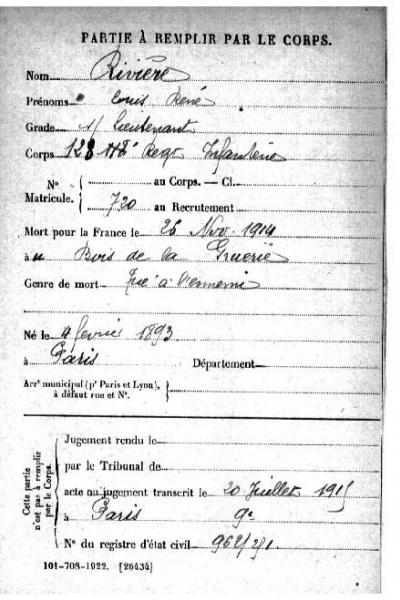 PARTIE À REMPLIR PAR LE CORPS.
Nom Rivière
Prénoms Louis René
Grade s/ Lieutenant
Corps 128 Regt Infanterie
N° Matricule. { au Corps. — Cl.
720 au Recrutement
Mort pour la France le 26 Nov. 1914
à u Bois de la Gruerie
Genre de mort Tué à l'ennemi
Né le 4 février 1893
à Paris Département
Arrt municipal (pr Paris et Lyon), à défaut rue et N°. {
Cette partie n'est pas à remplir par le Corps.
Jugement rendu le
par le Tribunal de
acte ou jugement transcrit le 20 Juillet 1915
à Paris 9e
N° du registre d'état civil 962/291.
101-708-1922. [26434]